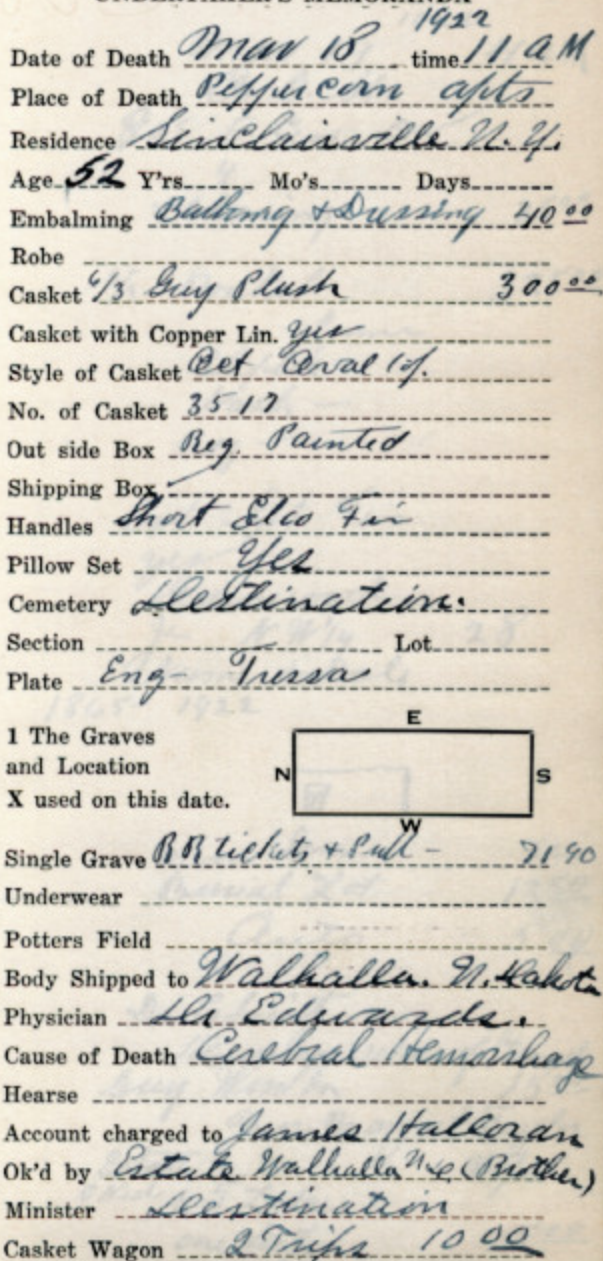 UNDERTAKER'S MEMORANDA
1922
Date of Death Mar 18 time 11 A M
Place of Death Peppercorn apts
Residence Sinclairville N.Y.
Age 52 Y'rs Mo's Days
Embalming Bathing & Dressing 40 00
Robe
Casket 6/3 Grey Plush 300 00
Casket with Copper Lin. yes
Style of Casket Oct Oval
No. of Casket 3517
Out side Box Reg. Painted
Shipping Box
Handles Short Elco
Pillow Set Yes
Cemetery Destination.
Section Lot
Plate Eng- Tressa
E
1 The Graves
and Location
N S
X used on this date.
W
Single Grave RR tickets + Pull - 71 90
Underwear
Potters Field
Body Shipped to Walhalla. N. Dakota
Physician Dr Edwards.
Cause of Death Cerebral Hemorrhage
Hearse
Account charged to James Halloran
Ok'd by Estate Walhalla (Brother)
Minister Destination
Casket Wagon 2 Trips 10 00